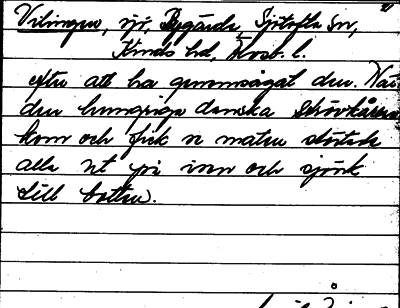 Vikingen, sjö, Bygärde, Sjötofta sn,
Kinds hd, Älvsb. l.
efter att ha genomsågat den. När
den hungriga danska strövkåren
kom och fick se maten störtade
alla ut på isen och sjönk
till botten.